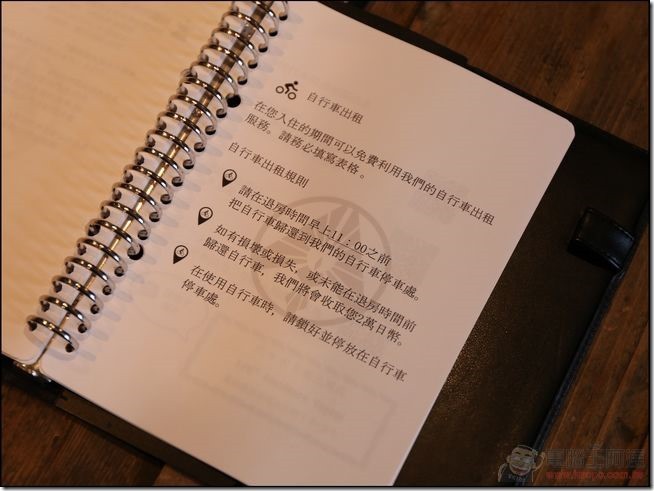 自行車出租
在您入住的期間可以免費利用我們的自行車出租
服務。請務必填寫表格。
自行車出租規則
請在退房時間早上11：00之前
把自行車歸還到我們的自行車停車處。
如有損壞或損失，或未能在退房時間前
歸還自行車，我們將會收取您2萬日幣。
在使用自行車時，請鎖好並停放在自行車
停車處。